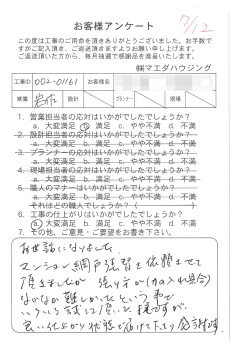 お客様アンケート
7/12
この度は工事のご用命を頂きありがとうございました。お手数で
すがご記入頂き、ご返送頂きますようお願い申し上げます。
ご返送頂いた方から、毎月抽選で感謝品を進呈いたします。
㈱マエダハウジング
工事ID 002-01161 お客様名
営業 岩佐 設計 プランナー 現場
1. 営業担当者の応対はいかがでしたでしょうか?
a. 大変満足 b. 満足 c. やや不満 d. 不満
2. 設計担当者の応対はいかがでしたでしょうか?
a. 大変満足 b. 満足 c. やや不満 d. 不満
3. プランナーの応対はいかがでしたでしょうか?
a. 大変満足 b. 満足 c. やや不満 d. 不満
4. 現場担当者の応対はいかがでしたでしょうか?
a. 大変満足 b. 満足 c. やや不満 d. 不満
5. 職人のマナーはいかがでしたでしょうか?
a. 大変満足 b. 満足 c. やや不満 d. 不満
それはどの職人でしょうか?( )
6. 工事の仕上がりはいかがでしたでしょうか?
a. 大変満足 b. 満足 c. やや不満 d. 不満
7. その他、ご意見・ご要望をお書き下さい。
お世話になりました
マンション網戸張替を依頼させて
頂きましたが 張り方が
なかなか難しかったという事で
良い仕上がり状態で届けて下さり感謝